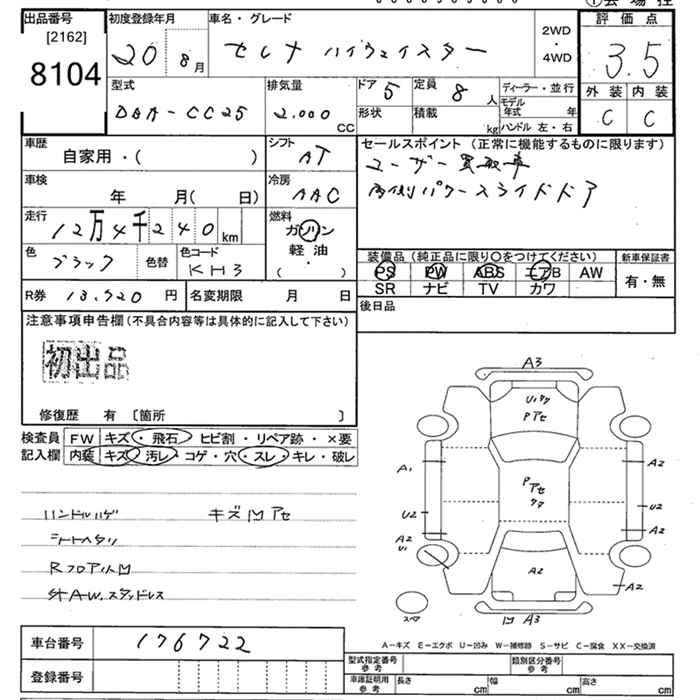 出品番号 初度登録年月 車名・グレード 2WD ・ 4WD 評価点
[2162]
8104 20 8月 セレナ ハイウェイスター 3.5
型式 排気量 ドア 5 定員 8人 ディーラー・並行 外装 内装
DBA-CC25 2.000 CC 形状 積載 kg モデル年式 年 C C
ハンドル 左・右
車歴 シフト セールスポイント (正常に機能するものに限ります)
自家用・( ) AT ユーザー買取車
車検 冷房 両側パワースライドドア
年 月( 日) AAC
走行 燃料
12万4千240km ガソリン
色 色替 色コード 軽油
ブラック KH3 ・( )
装備品 (純正品に限り○をつけてください) 新車保証書
PS PW ABS エアB AW 有・無
SR ナビ TV カワ
R券 13.520円 名変期限 月 日 後日品
注意事項申告欄 (不具合内容等は具体的に記入して下さい)
初出品
修復歴 有 〔箇所 〕
検査員 FW キズ・飛石・ヒビ割・リペア跡・×要
記入欄 内装 キズ・汚レ・コゲ・穴・スレ・キレ・破レ
ハンドルハゲ キズ凹アセ
シートヘタリ
RフロアハM凹
社AW.スタッドレス
A3
Uワケ
Pアセ
A1 A2
Pアセ
U2 U2
A2 A2
U1
A2 A2
スペア 凹 A3
A−キズ E−エクボ U−凹み W−補修跡 S−サビ C−腐食 XX−交換済
車台番号 176722
型式指定番号 参考 類別区分番号 参考
登録番号
車庫証明用 参考 長さ cm 幅 cm 高さ cm